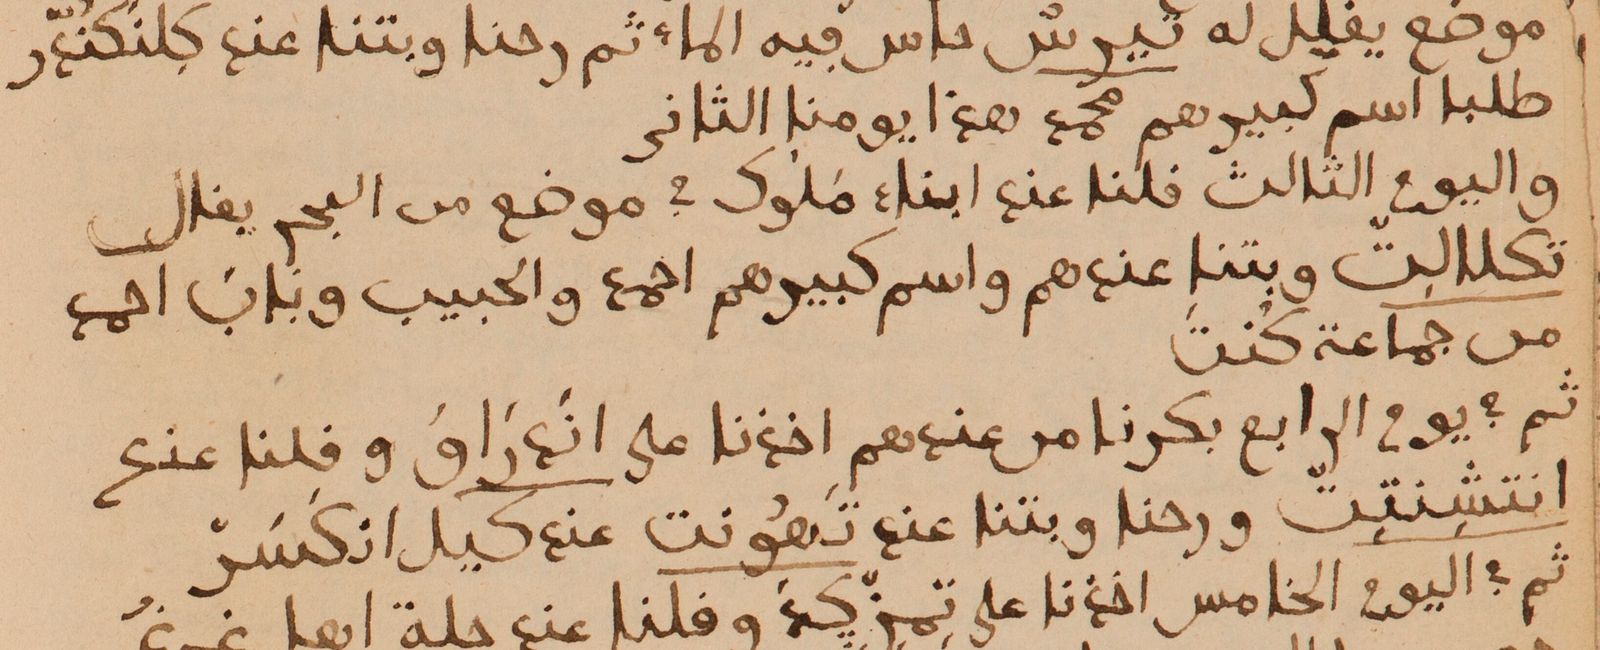 موضع يفلل له تيرش حاس فيه الماء ثم رحنا وبتنا عند كلنكنّدر
طلبا اسم كبيرهم محمد هذا يومنا الثاني
واليوم الثالث فلنا عند ابناء مَلوك في موضع من البحر يفال
تكللالِتّ وبتنا عندهم واسم كبيرهم احمد والحبيب وبابَ احمد
من جماعة كُنتَ
ثم في يوم الرابع بكرنا من عندهم اخذنا على اندَرَاقَ وفلنا عند
انتشِنتِتّ ورحنا وبتنا عند تَهُونت عند كيل انكسَرْ
ثم في اليوم الخامس اخذنا على وفلنا عند حلة اهل